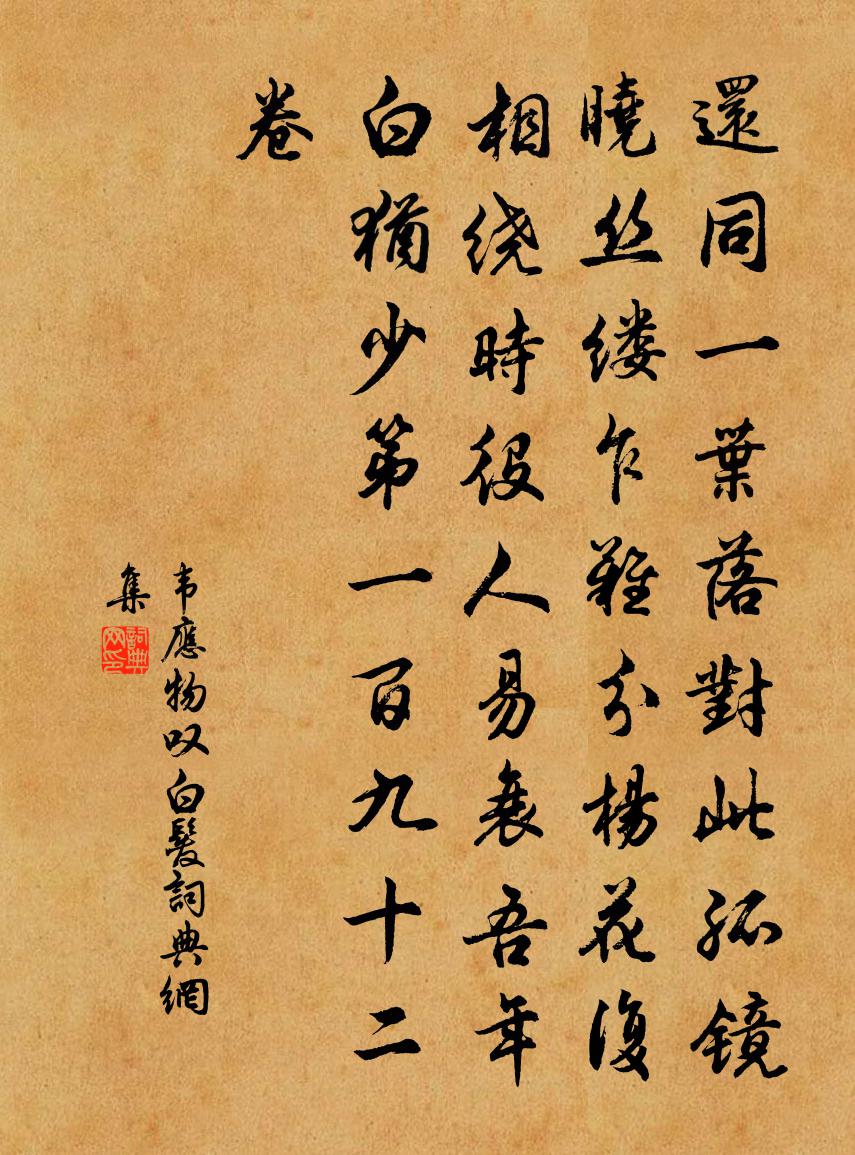 還同一葉落對此孤镜
曉丝缕乍難分楊花復
相绕時役人易衰吾年
白猶少第一百九十二
卷
韦應物叹白髮詞典網
集
詞典網印